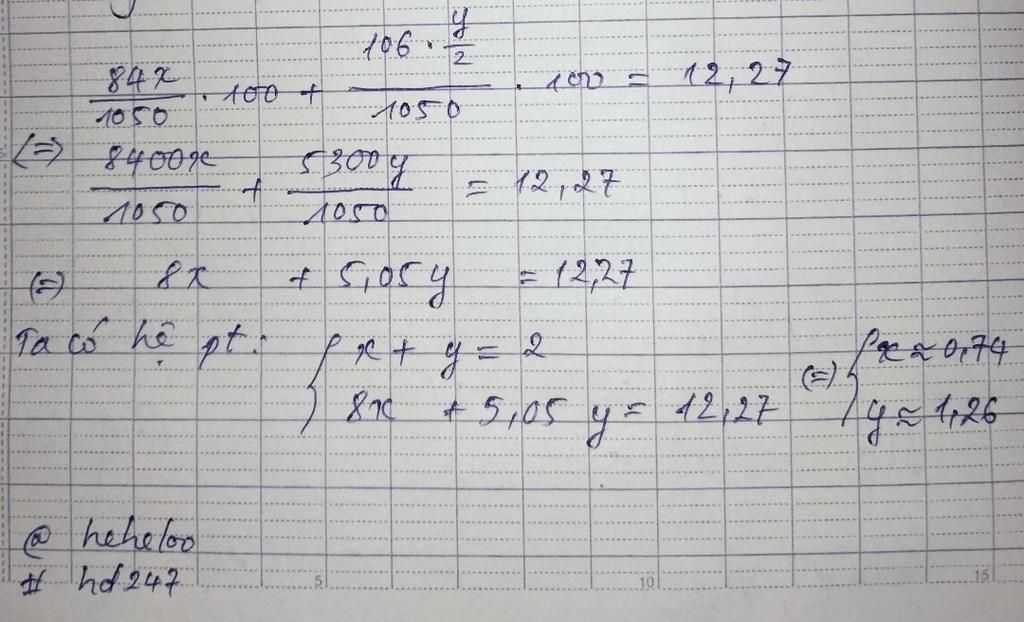 84x/1050 . 100 + (106 . y/2)/1050 . 100 = 12,27
(=) 8400x/1050 + 5300y/1050 = 12,27
(=) 8x + 5,05y = 12,27
Ta có hệ pt: { x + y = 2 (=) { x ≈ 0,74
8x + 5,05 y = 12,27 y ≈ 1,26
@ heheloo
# hd247
5 10 15